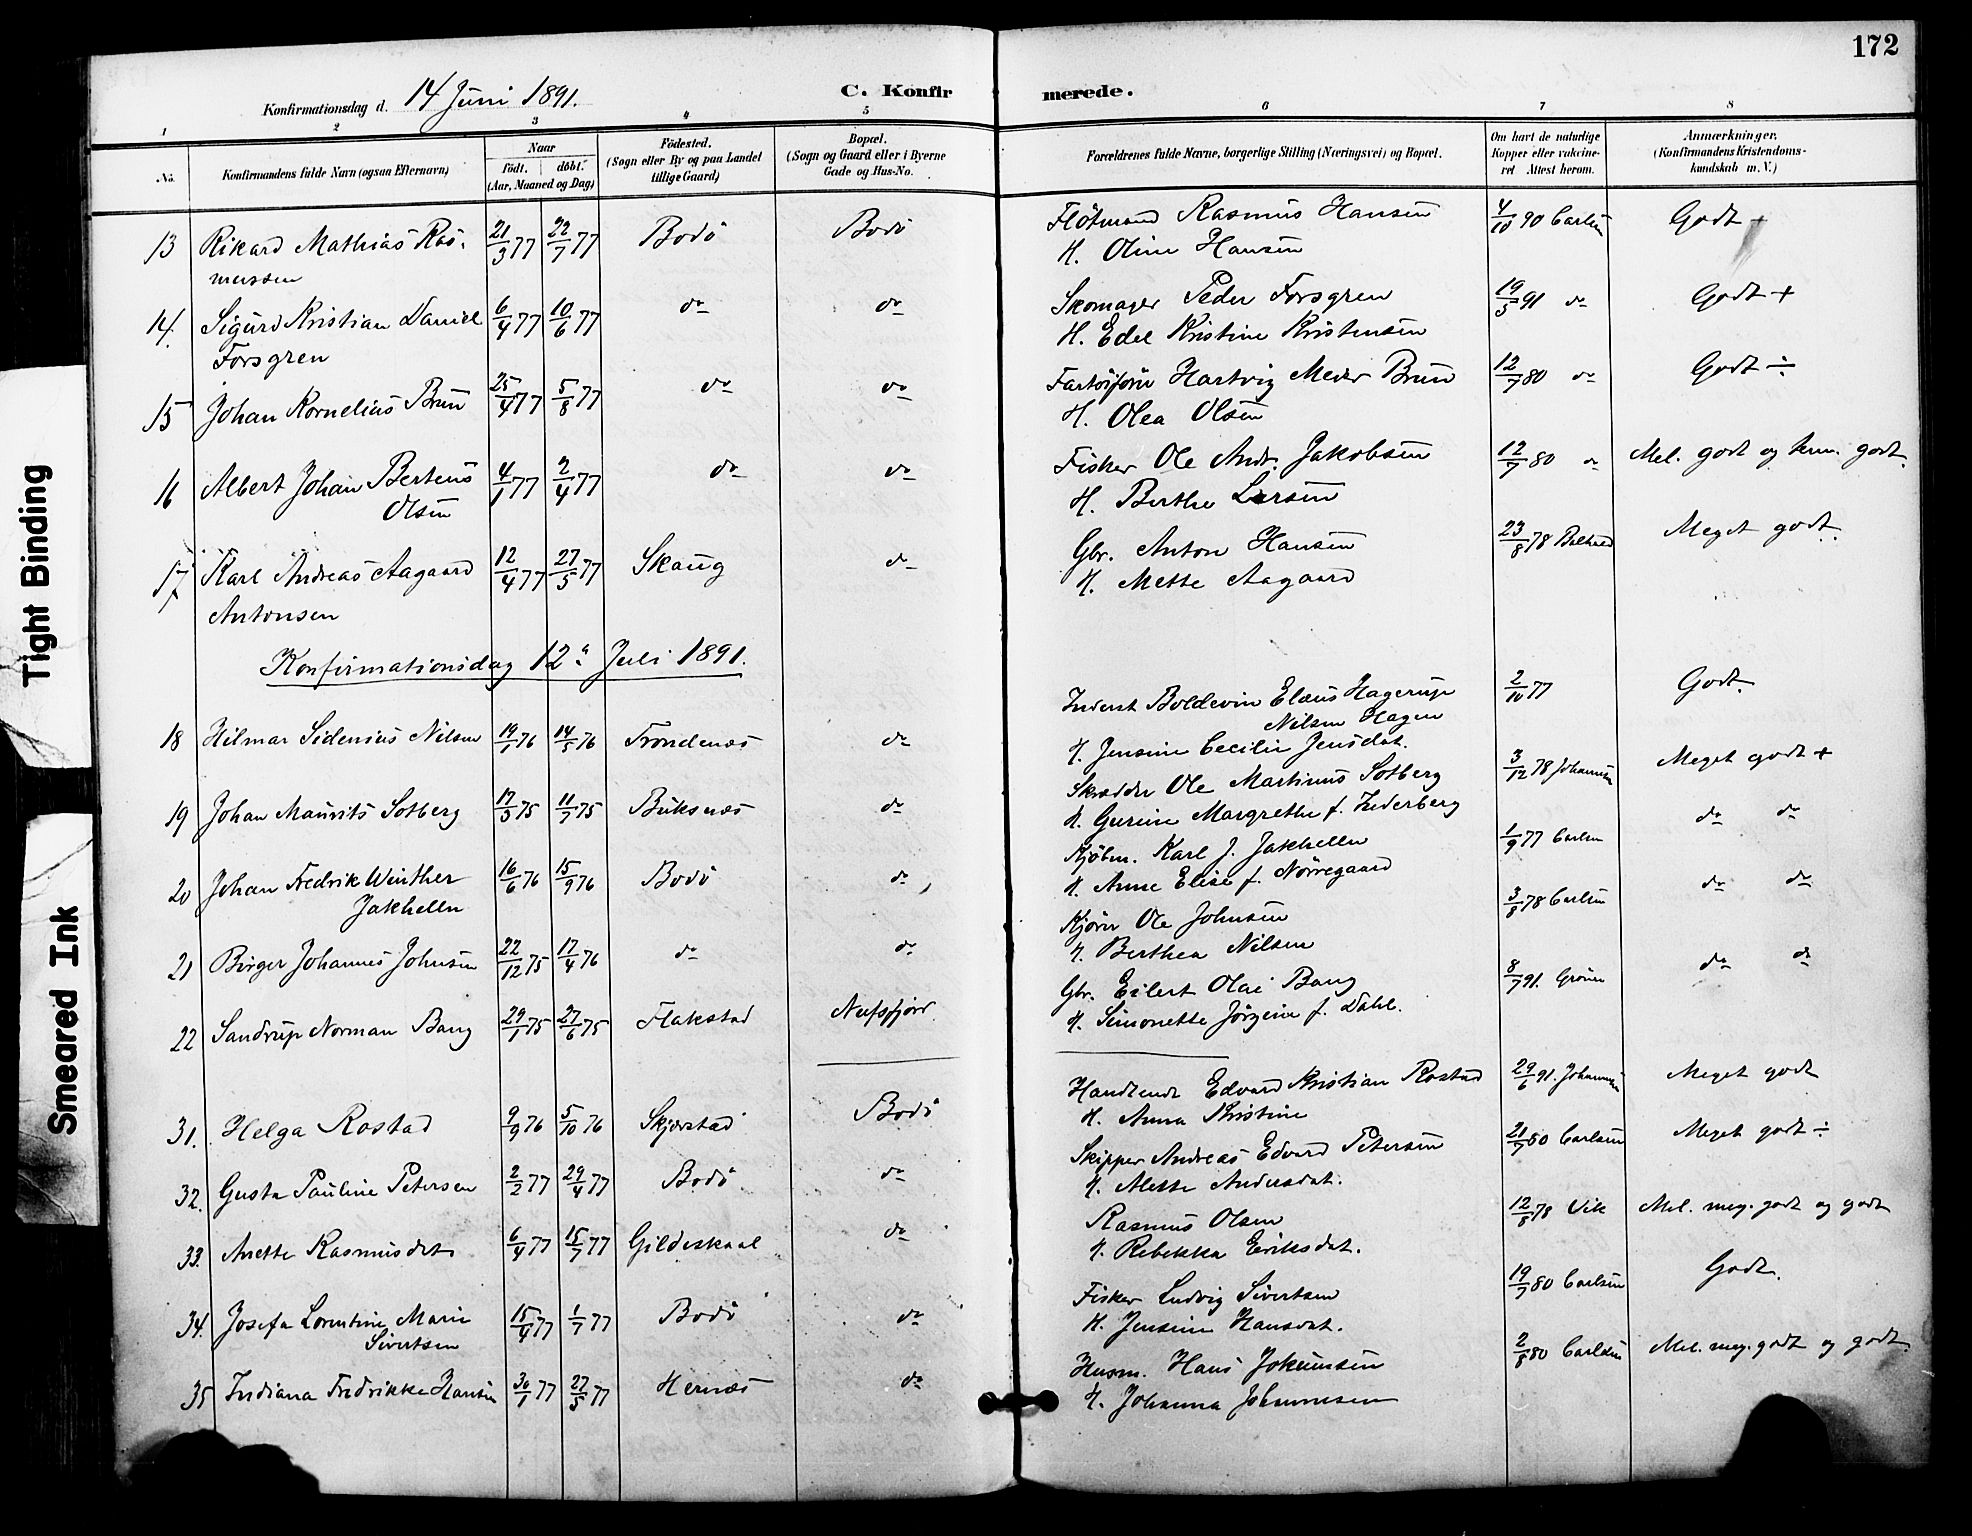 172
Konfirmationsdag d. 14 Juni 1891.
C. Konfirmerede.
1 2 3 4 5 6 7 8
No.
Konfirmandens fulde Navn (ogsaa Efternavn)
Naar
födt. döbt.
(Aar, Maaned og Dag)
Födested.
(Sogn eller By og paa Landet
tillige Gaard)
Bopæl.
(Sogn og Gaard eller i Byerne
Gade og Hus-No.
Forældrenes fulde Navne, borgerlige Stilling (Næringsvei) og Bopæl.
Om havt de naturlige
Kopper eller vakcine-
ret Attest herom.
Anmærkninger.
(Konfirmandens Kristendoms-
kundskab m. V.)
13 Rikard Mathias Ras- 21/3 77 22/7 77 Bodö Bodö Flötmand Rasmus Hansen 4/10 90 Carlsen Godt +
mussen H. Oline Hansen
14. Sigurd Kristian Daniel 6/4 77 10/6 77 do do Skomager Peder Forsgren 19/5 91 do Godt +
Forsgren H. Edel Kristine Kristensen
15 Johan Kornelius Brun 25/4 77 5/8 77 do do Fartöiförer Hartvig Meder Brun 12/7 80 do Godt ÷
H. Olea Olsen
16 Albert Johan Bertens 4/1 77 2/4 77 do do Fisker Ole Andr. Jakobsen 12/7 80 do Mel. godt og tem. godt.
Olsen H. Berthe Larsen
17 Karl Andreas Aagaard 12/4 77 27/5 77 Skaug do Gbr. Anton Hansen 23/8 78 Meget godt.
Antonsen H. Mette Aagaard
Konfirmationsdag 12te Juli 1891.
18 Hilmar Sidenius Nilsen 19/1 76 14/5 76 Trondenæs do Inderst Boldevin Elæus Hagerup 2/10 77 Godt.
Nilsen Hagen
H. Jensine Cecilie Jensdat.
19 Johan Maurits Solberg 17/3 75 11/7 75 Buksnæs do Skrædder Ole Martinus Solberg 3/12 78 Johannesen Meget godt +
H. Gurine Margrethe f. Inderberg
20 Johan Fredrik Winther 16/6 76 15/9 76 Bodö do Kjöbm. Karl J. Jakhelln 1/9 77 Carlsen do do
Jakhelln H. Anne Elise f. Nörregaard
21 Birger Johannes Johnsen 22/12 75 17/4 76 do do Kjörer Ole Johnsen 3/8 78 Carlsen do do
H. Berthea Nilsen
22 Sandrup Norman Bang 29/1 75 27/6 75 Flakstad Nufsfjord. Gbr. Eilert Olai Bang 8/7 91. do do
H. Simonette Jörgine f. Dahl.
31. Helga Rostad 9/9 76 5/10 76 Skjerstad Bodö Handlende Edvard Kristian Rostad 29/6 91. Johannesen Meget godt
H. Anna Kristine
32. Gusta Pauline Petersen 2/2 77 29/4 77 Bodö do Skipper Andreas Edvard Petersen 21/7 80 Carlsen Meget godt ÷
H. Alette Andersdat.
33. Anette Rasmusdet 6/4 77 15/7 77 Gildeskaal do Rasmus Olsen 12/8 78 Vik Mel. meg. godt og godt
H. Rebekka Eriksdat.
34. Josefa Lorentine Marie 15/4 77 1/7 77 Bodö do Fisker Ludvig Sivertsen 19/7 80 Carlsen Godt.
Sivertsen H. Jensine Hansdat.
35 Indiana Fredrikke Hansen 30/1 77 27/5 77 Hernæs do Husm. Hans Jokumsen 2/8 80 Carlsen Mel. meg. godt og godt.
H. Johanna Johannesen
Tight Binding
Smeared Ink